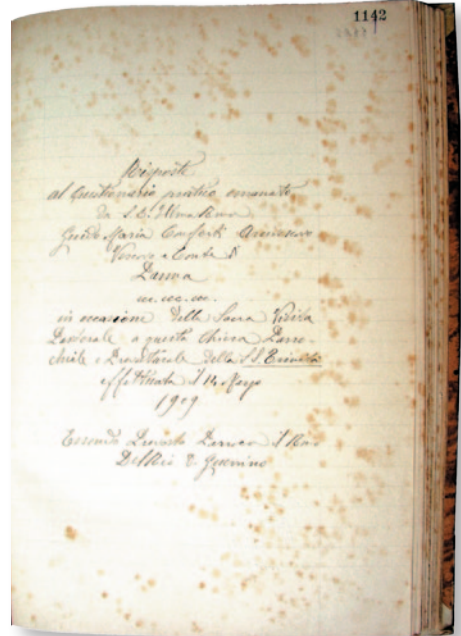 1142
Risposte
al Questionario pratico emanato
da S. E. Illma Rma
Guido Maria Conforti Arcivescovo
Vescovo e Conte di
Parma
ecc. ecc. ecc.
in occasione della Sacra Visita
Pastorale a questa Chiesa Parro-
chiale e Prepositurale della SS. Trinità
effettuata il 14
1909
Essendo Prevosto Parroco il
Del Rio D. Guerrino